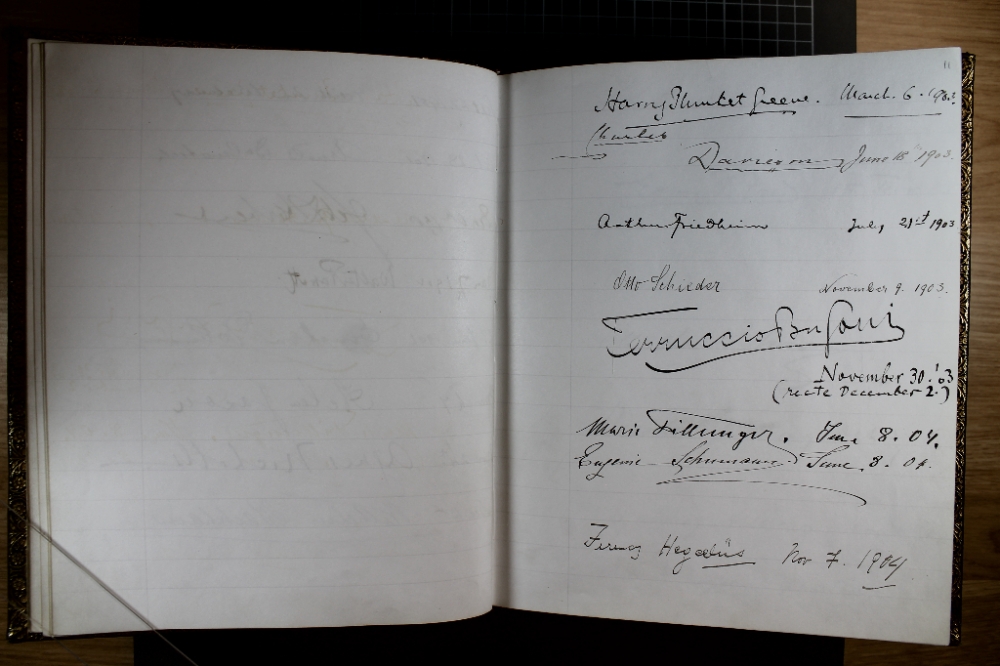 11
Harry Plunket Greene. March 6. 1903.
Charles
Davison June 18th 1903.
Arthur Friedheim July 21st 1903
Otto Schieder November 9. 1903.
Ferruccio Busoni
November 30. '03
(recte December 2.)
Marie Fillunger. June 8. 04.
Eugenie Schumann June 8. 04.
Ferencz Hegedüs Nov 7. 1904